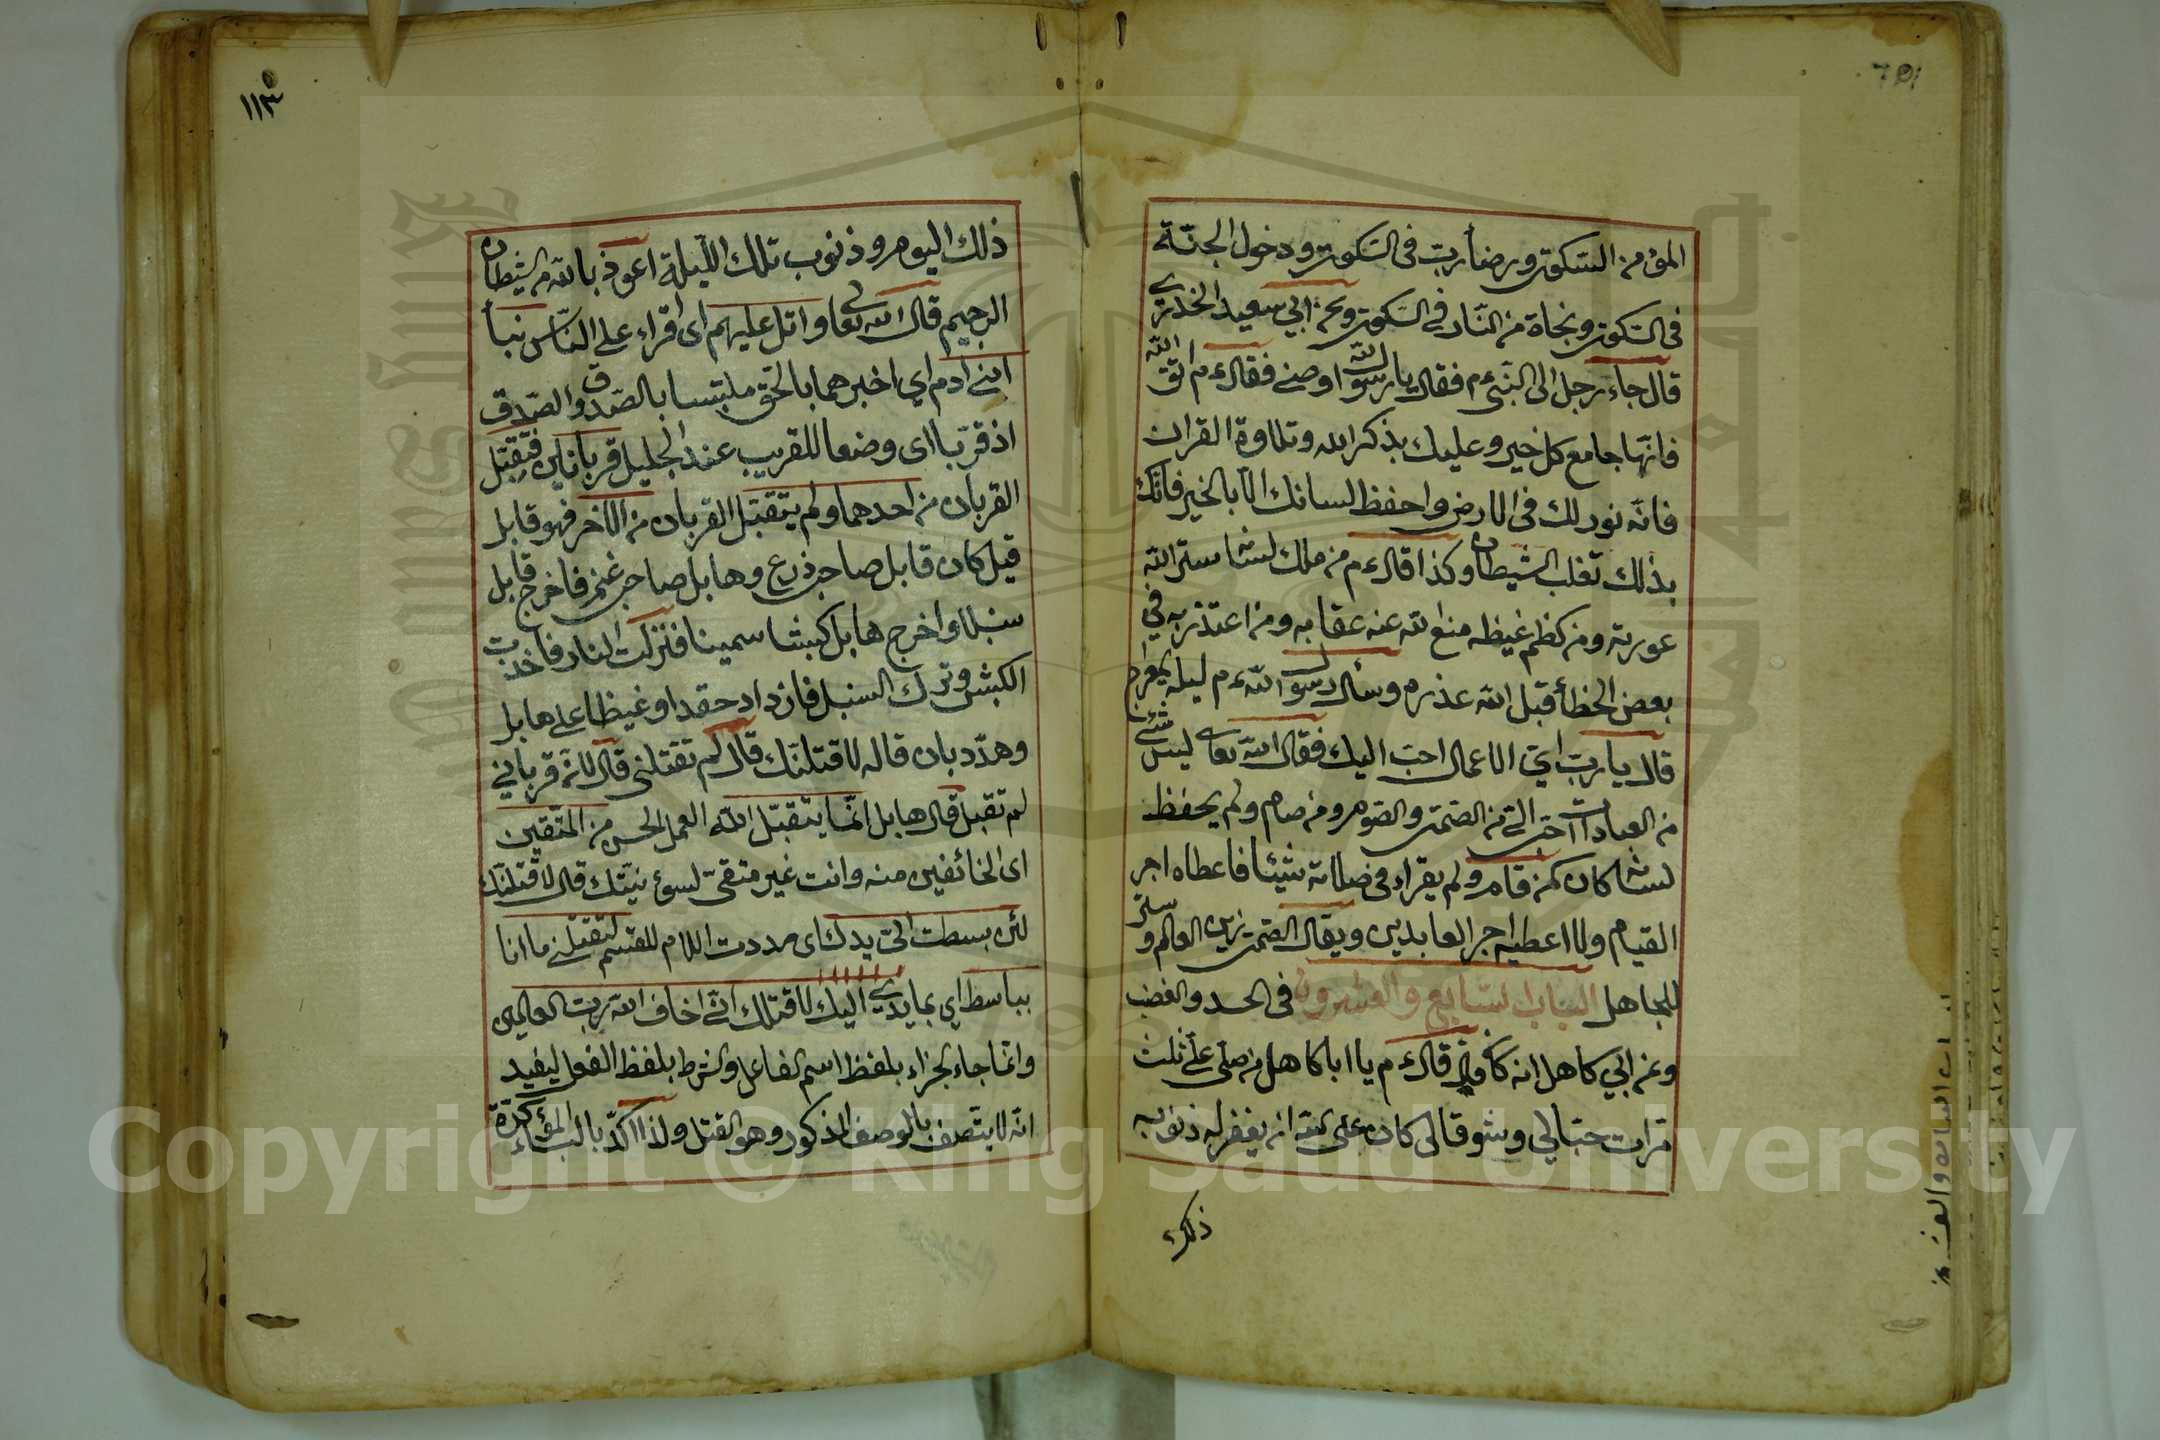 المؤمن السكوت ورضأ رب في السكوت ودخول الجنة
في السكوت ونجاة من النار في السكوت وعن ابي سعيد الخدري
قال جاء رجل الى النبي ءم فقال يا رسول الله اوصني فقال ءم اتق الله
فانها جامع كل خير وعليك بذكر الله وتلاوة القران
فانه نور لك في الارض واحفظ لسانك الا بالخير فانك
بذلك تغلب الشيطان وكذا قال ءم من ملك لسانه ستر الله
عورته ومن كظم غيظه منع الله عنه عقابه ومن اعتذر به في
بعض الخطأ قبل الله عذره وسأل رسول الله ءم ليلة المعراج
قال يا رب اي الاعمال احب اليك فقال الله تعالى ليس شئ
من العبادات احب الي من الصمت والصوم ومن صام ولم يحفظ
لسانه كان كمن قام ولم يقراء في صلاته شيئا فاعطاه اجر
القيام ولا اعطيه اجر العابدين ويقال الصمت زين العالم وستر
للجاهل الباب السابع والعشرون في الحسد والغضب
وعن ابي كاهل انه قال ءم يا ابا كاهل من صلى علي ثلث
مرات حبا لي وشوقا لي كان على الله ان يغفر له ذنوبه
ذلك
١١٣
ذلك اليوم وذنوب تلك الليلة اعوذ بالله من الشيطان
الرجيم قال الله تعالى واتل عليهم اى اقراء على الناس نبأ
ابني ادم اي اخبرهما بالحق ملتبسا بالصدق والصدق
اذ قربا اى وضعا للقريب عند الجليل قربانين فتقبل
القربان من احدهما ولم يتقبل القربان من الاخر فهو قابل
قيل كان قابل صاحب زرع وهابل صاحب غنم فاخرج قابل
سنبلا واخرج هابل كبشا سمينا فنزلت النار فاخذت
الكبش وترك السنبل فازداد حقدا وغيظا على هابل
وهدد بان قاله لاقتلنك قال لم تقتلني قال لانه قرباني
لم تقبل قال هابل انما يتقبل الله العمل الحسن من المتقين
اى الخائفين منه وانت غير متقي لسوء نيتك قال لاقتلنك
لئن بسطت الي يدك اى مددت اللام للقسم لتقتلني ما انا
بباسط اي بماد يدي اليك لاقتلك اني اخاف الله رب العالمين
وانما جاء الجزاء بلفظ اسم الفاعل والشرط بلفظ الفعل ليفيد
انه لا يتصف بالوصف المذكور وهو القتل ولذا اكد بالباء المؤكدة
Copyright © King Saud University